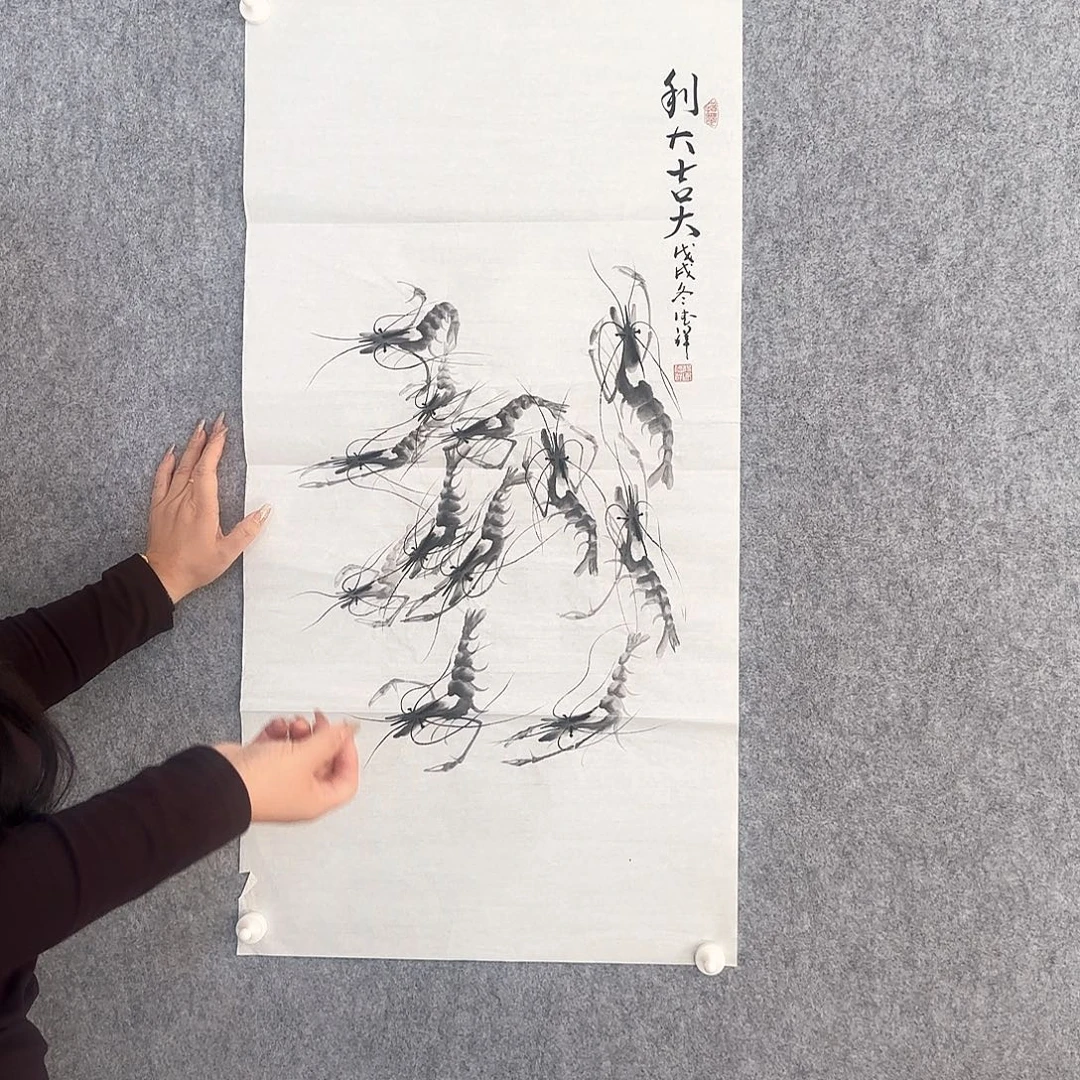 利大吉大戊戌冬祥